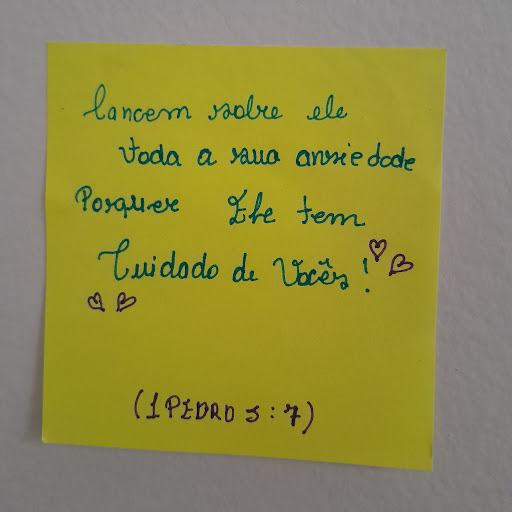 Lancem sobre ele
toda a sua ansiedade
Porquer Ele tem
Cuidado de Vocês!
(1 PEDRO 5:7)